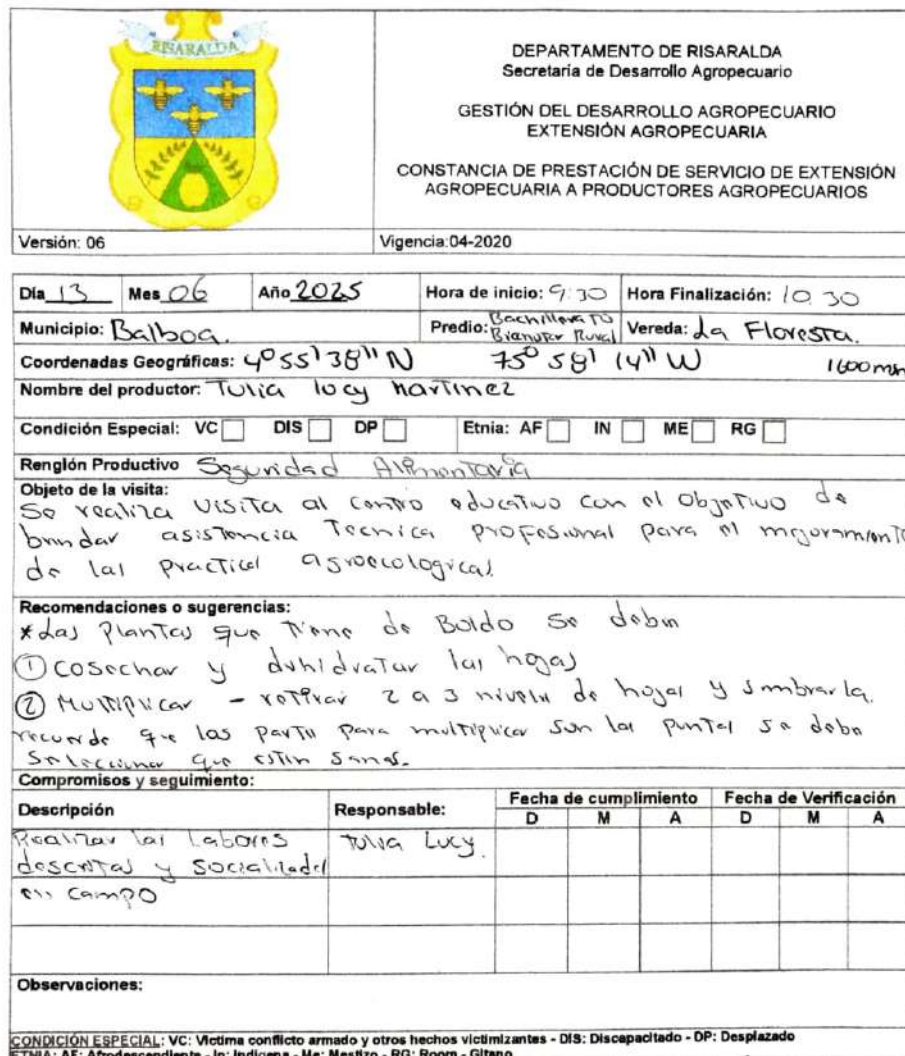 RISARALDA
DEPARTAMENTO DE RISARALDA
Secretaría de Desarrollo Agropecuario
GESTIÓN DEL DESARROLLO AGROPECUARIO
EXTENSIÓN AGROPECUARIA
CONSTANCIA DE PRESTACIÓN DE SERVICIO DE EXTENSIÓN
AGROPECUARIA A PRODUCTORES AGROPECUARIOS
Versión: 06 Vigencia:04-2020
Día 13 Mes 06 Año 2025 Hora de inicio: 9:30 Hora Finalización: 10:30
Municipio: Balboa. Predio: Bachillerato Bienestar Rural Vereda: La Floresta.
Coordenadas Geográficas: 4° 55' 38" N 75° 58' 14" W 1600 msn
Nombre del productor: Tulia lucy Martinez
Condición Especial: VC DIS DP Etnia: AF IN ME RG
Renglón Productivo Seguridad Alimentaria
Objeto de la visita:
Se realiza visita al centro educativo con el objetivo de
brindar asistencia Tecnica profesional para el mejoramiento
de las practicas agroecologicas.
Recomendaciones o sugerencias:
*Las Plantas que tiene de Boldo se deben
① Cosechar y dehidratar las hojas
② Multiplicar - retirar 2 a 3 niveles de hojas y sembrarla.
recuerde que las parte para multiplicar son las puntas se debe
Seleccionar que esten sanas.
Compromisos y seguimiento:
Descripción Responsable: Fecha de cumplimiento Fecha de Verificación
D M A D M A
Realizar las Labores Tulia Lucy.
descritas y socializadas
en campo
Observaciones:
CONDICIÓN ESPECIAL: VC: Victima conflicto armado y otros hechos victimizantes - DIS: Discapacitado - DP: Desplazado
ETNIA: AF: Afrodescendiente - In: Indígena - Me: Mestizo - RG: Room - Gitano